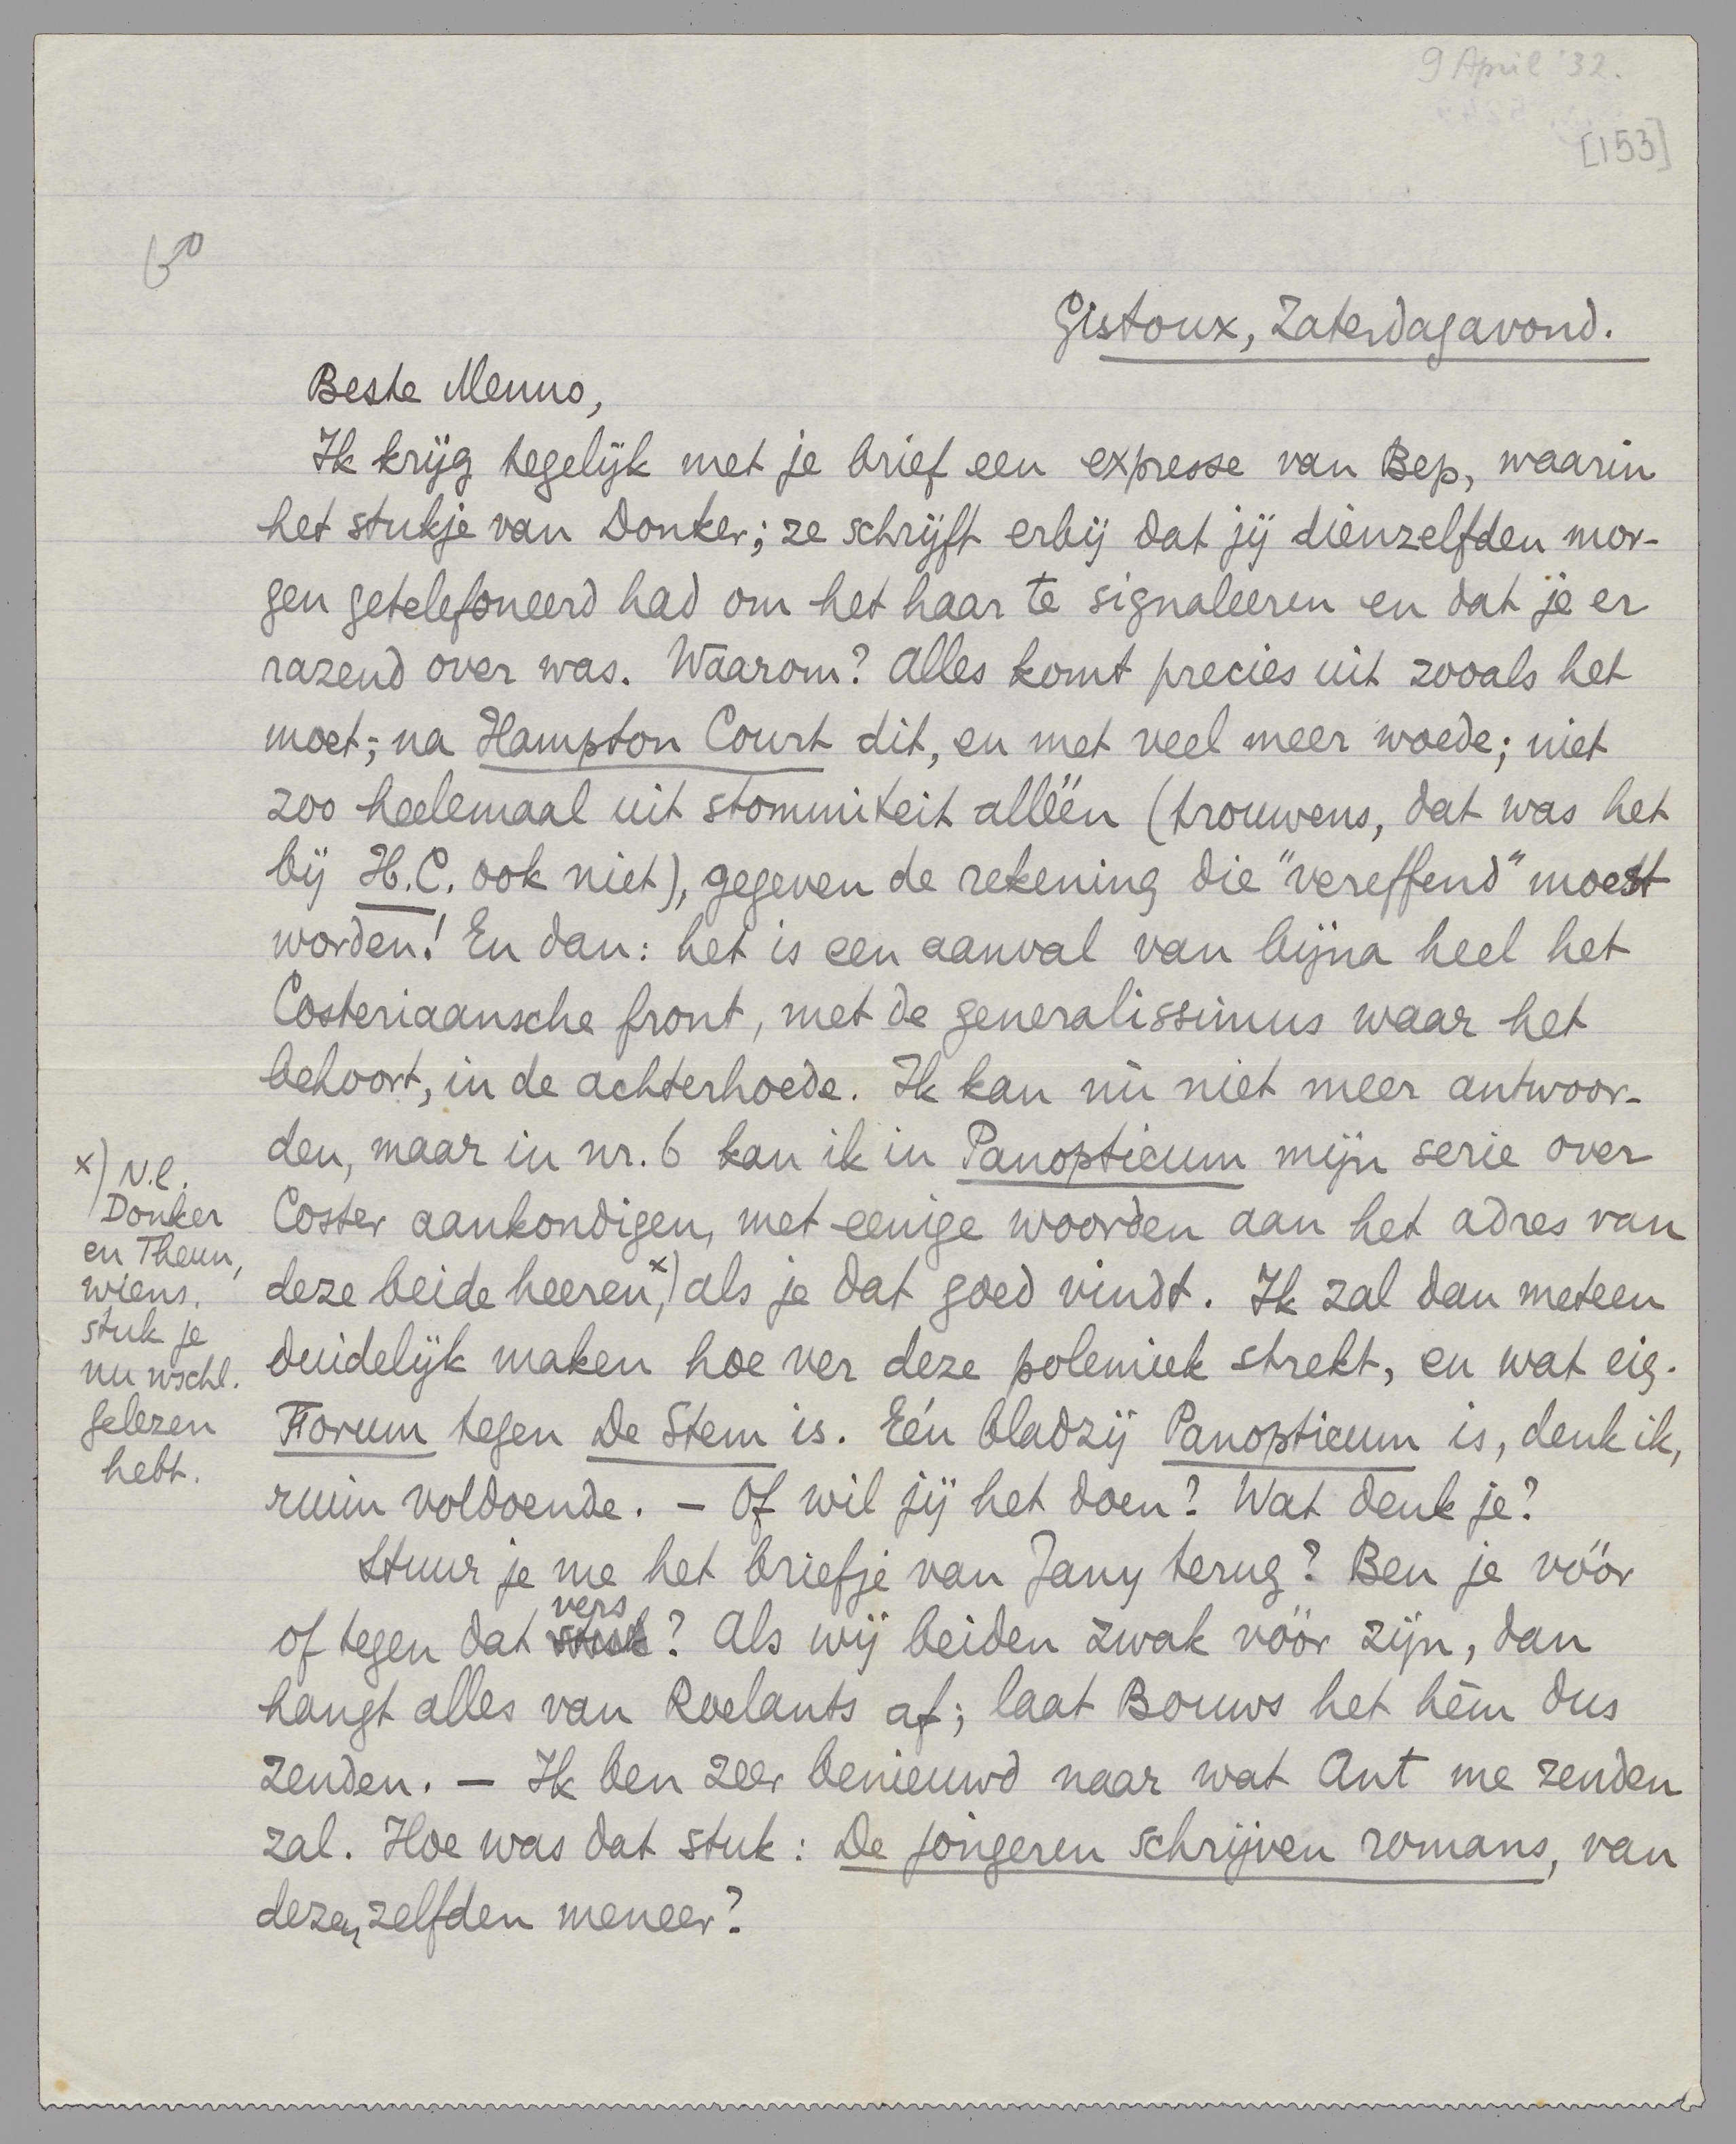 9 April '32.
[153]
Gistoux, Zaterdagavond.
Beste Menno,
Ik krijg tegelijk met je brief een expresse van Bep, waarin
het stukje van Donker; ze schrijft erbij dat jij dienzelfden mor-
gen getelefoneerd had om het haar te signaleeren en dat je er
razend over was. Waarom? Alles komt precies uit zooals het
moet; na Hampton Court dit, en met veel meer woede; niet
zoo heelemaal uit stommiteit alléén (trouwens, dat was het
bij H.C. ook niet), gegeven de rekening die "vereffend" moest
worden! En dan: het is een aanval van bijna heel het
Costeriaansche front, met de generalissimus waar het
behoort, in de achterhoede. Ik kan nù niet meer antwoor-
den, maar in nr. 6 kan ik in Panopticum mijn serie over
Coster aankondigen, met eenige woorden aan het adres van
deze beide heeren,x) als je dat goed vindt. Ik zal dan meteen
duidelijk maken hoe ver deze polemiek strekt, en wat eig.
Forum tegen De Stem is. Eén bladzij Panopticum is, denk ik,
ruim voldoende. — Of wil jij het doen? Wat denk je?
Stuur je me het briefje van Jany terug? Ben je vóór
of tegen dat vers? Als wij beiden zwak vóór zijn, dan
hangt alles van Roelants af; laat Bouws het hèm dus
zenden. — Ik ben zeer benieuwd naar wat Ant me zenden
zal. Hoe was dat stuk: De jongeren schrijven romans, van
dezen zelfden meneer?
x) N.l.
Donker
en Theun,
wiens
stuk je
nu wschl.
gelezen
hebt.